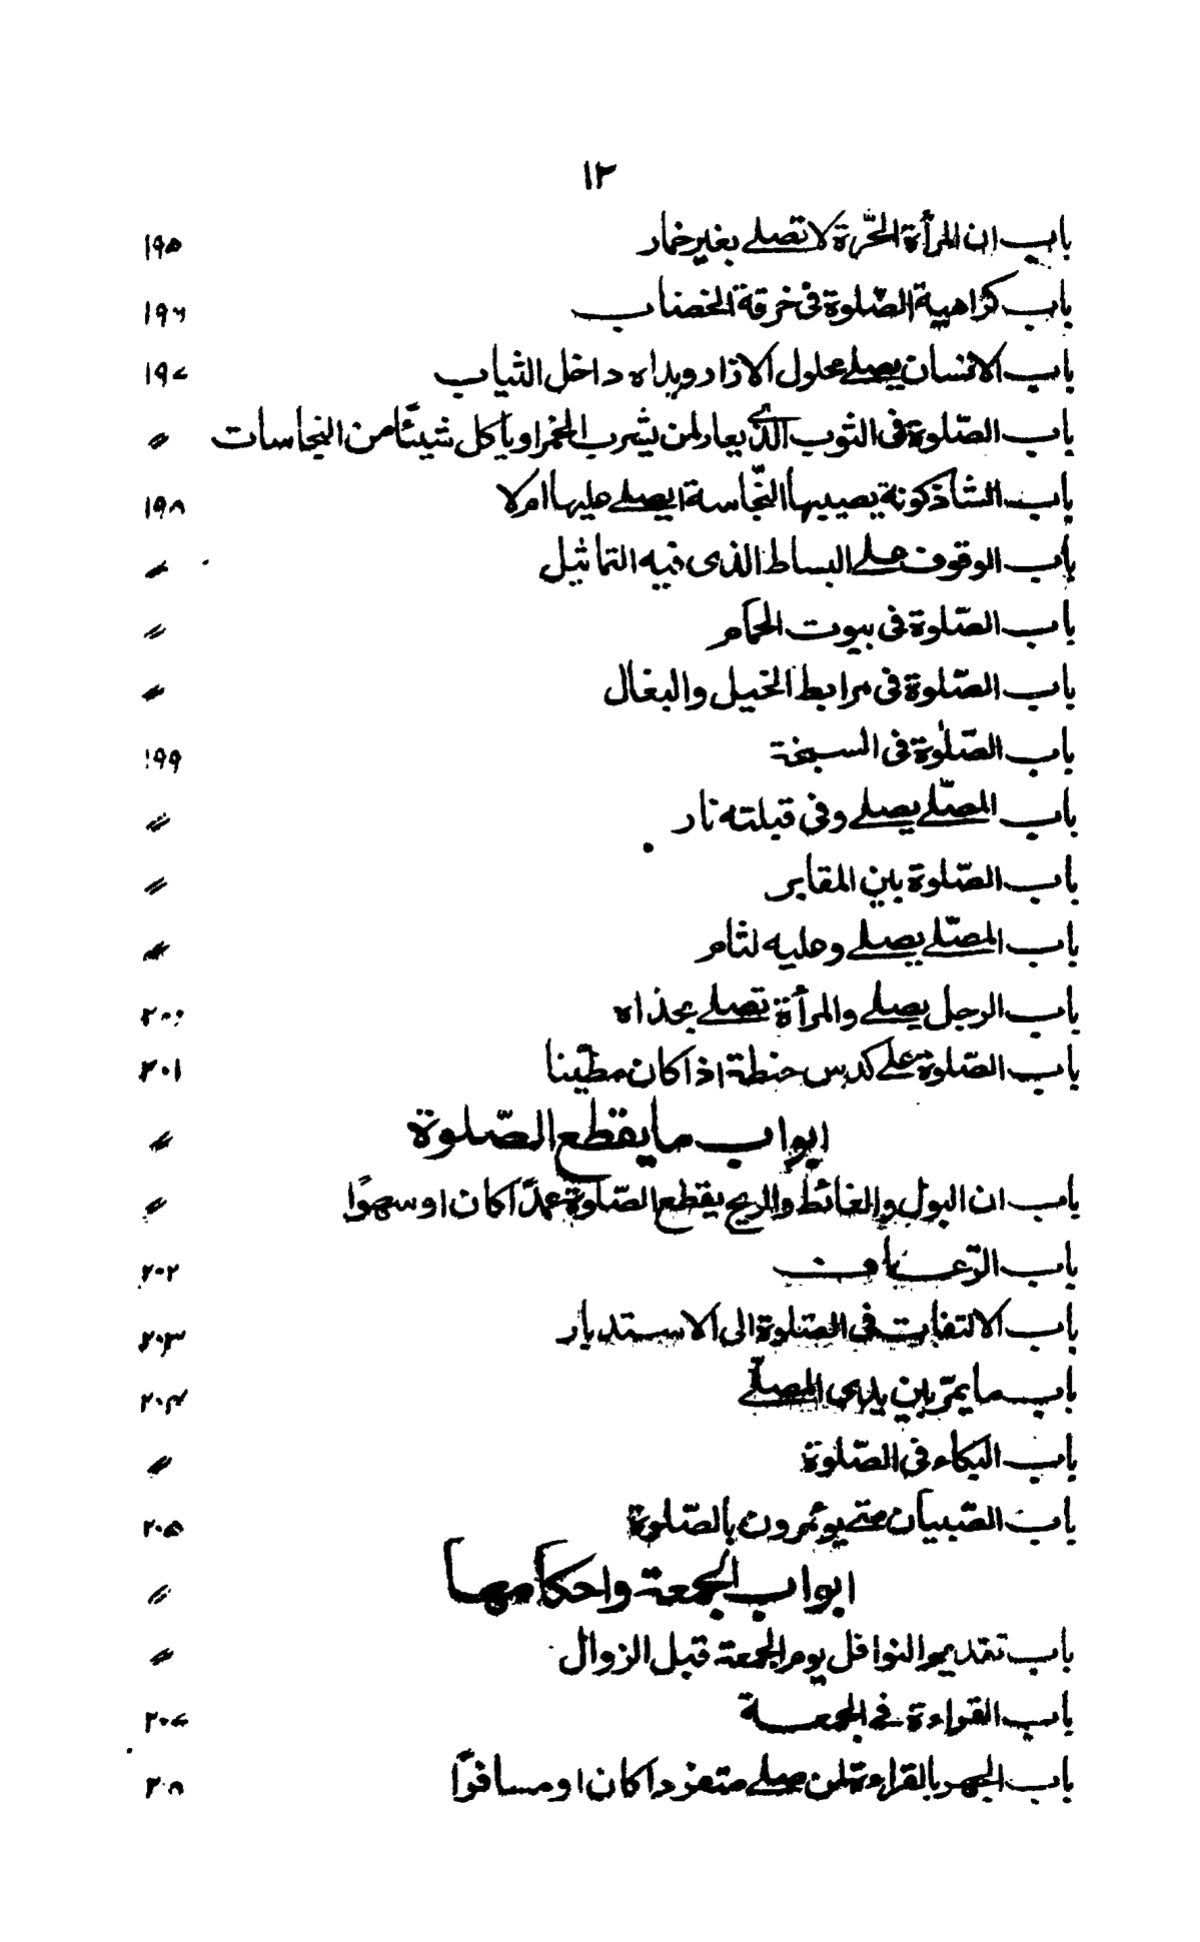 ١٢
باب ان المرأة الحّرة لا تصلے بغير خمار ١٩٥
باب كراهية الصّلوة فى خرقة الخضاب ١٩٦
باب الانسان يصلے محلول الازار ويداه داخل الثياب ١٩٧
باب الصّلوة فى الثوب الذى يعار لمن يشرب الخمر او ياكل شيئًا من النجاسات 〃
باب الشاذكونة يصيبها النّجاسة ايصلے عليها ام لا ١٩٨
باب الوقوف علے البساط الذى فيه التماثيل 〃
باب الصّلوة فى بيوت الحمام 〃
باب الصّلوة فى مرابط الخيل والبغال 〃
باب الصّلوة فى السبخة ١٩٩
باب المصلّے يصلے وفى قبلته نار 〃
باب الصّلوة بين المقابر 〃
باب المصلّے يصلے وعليه لثام 〃
باب الرجل يصلے والمرأة تصلے بحذاه ٢٠٠
باب الصّلوة علے كدس حنطة اذا كان مطيّنا ٢٠١
ابواب ما يقطع الصّلوة 〃
باب ان البول والغائط والريح يقطع الصّلوة عمدًا كان او سهوًا 〃
باب الرّعاف ٢٠٢
باب الالتفات فى الصّلوة الى الاستدبار ٢٠٣
باب ما يمرّ بين يدى المصلّے ٢٠٤
باب البكاء فى الصّلوة 〃
باب الصّبيان متے يؤمرون بالصّلوة ٢٠٥
ابواب الجمعة واحكامها 〃
باب تقديم النوافل يوم الجمعة قبل الزوال 〃
باب القراءة فے الجمعة ٢٠٧
باب الجهر بالقراءة لمن صلے منفردا كان او مسافرًا ٢٠٨